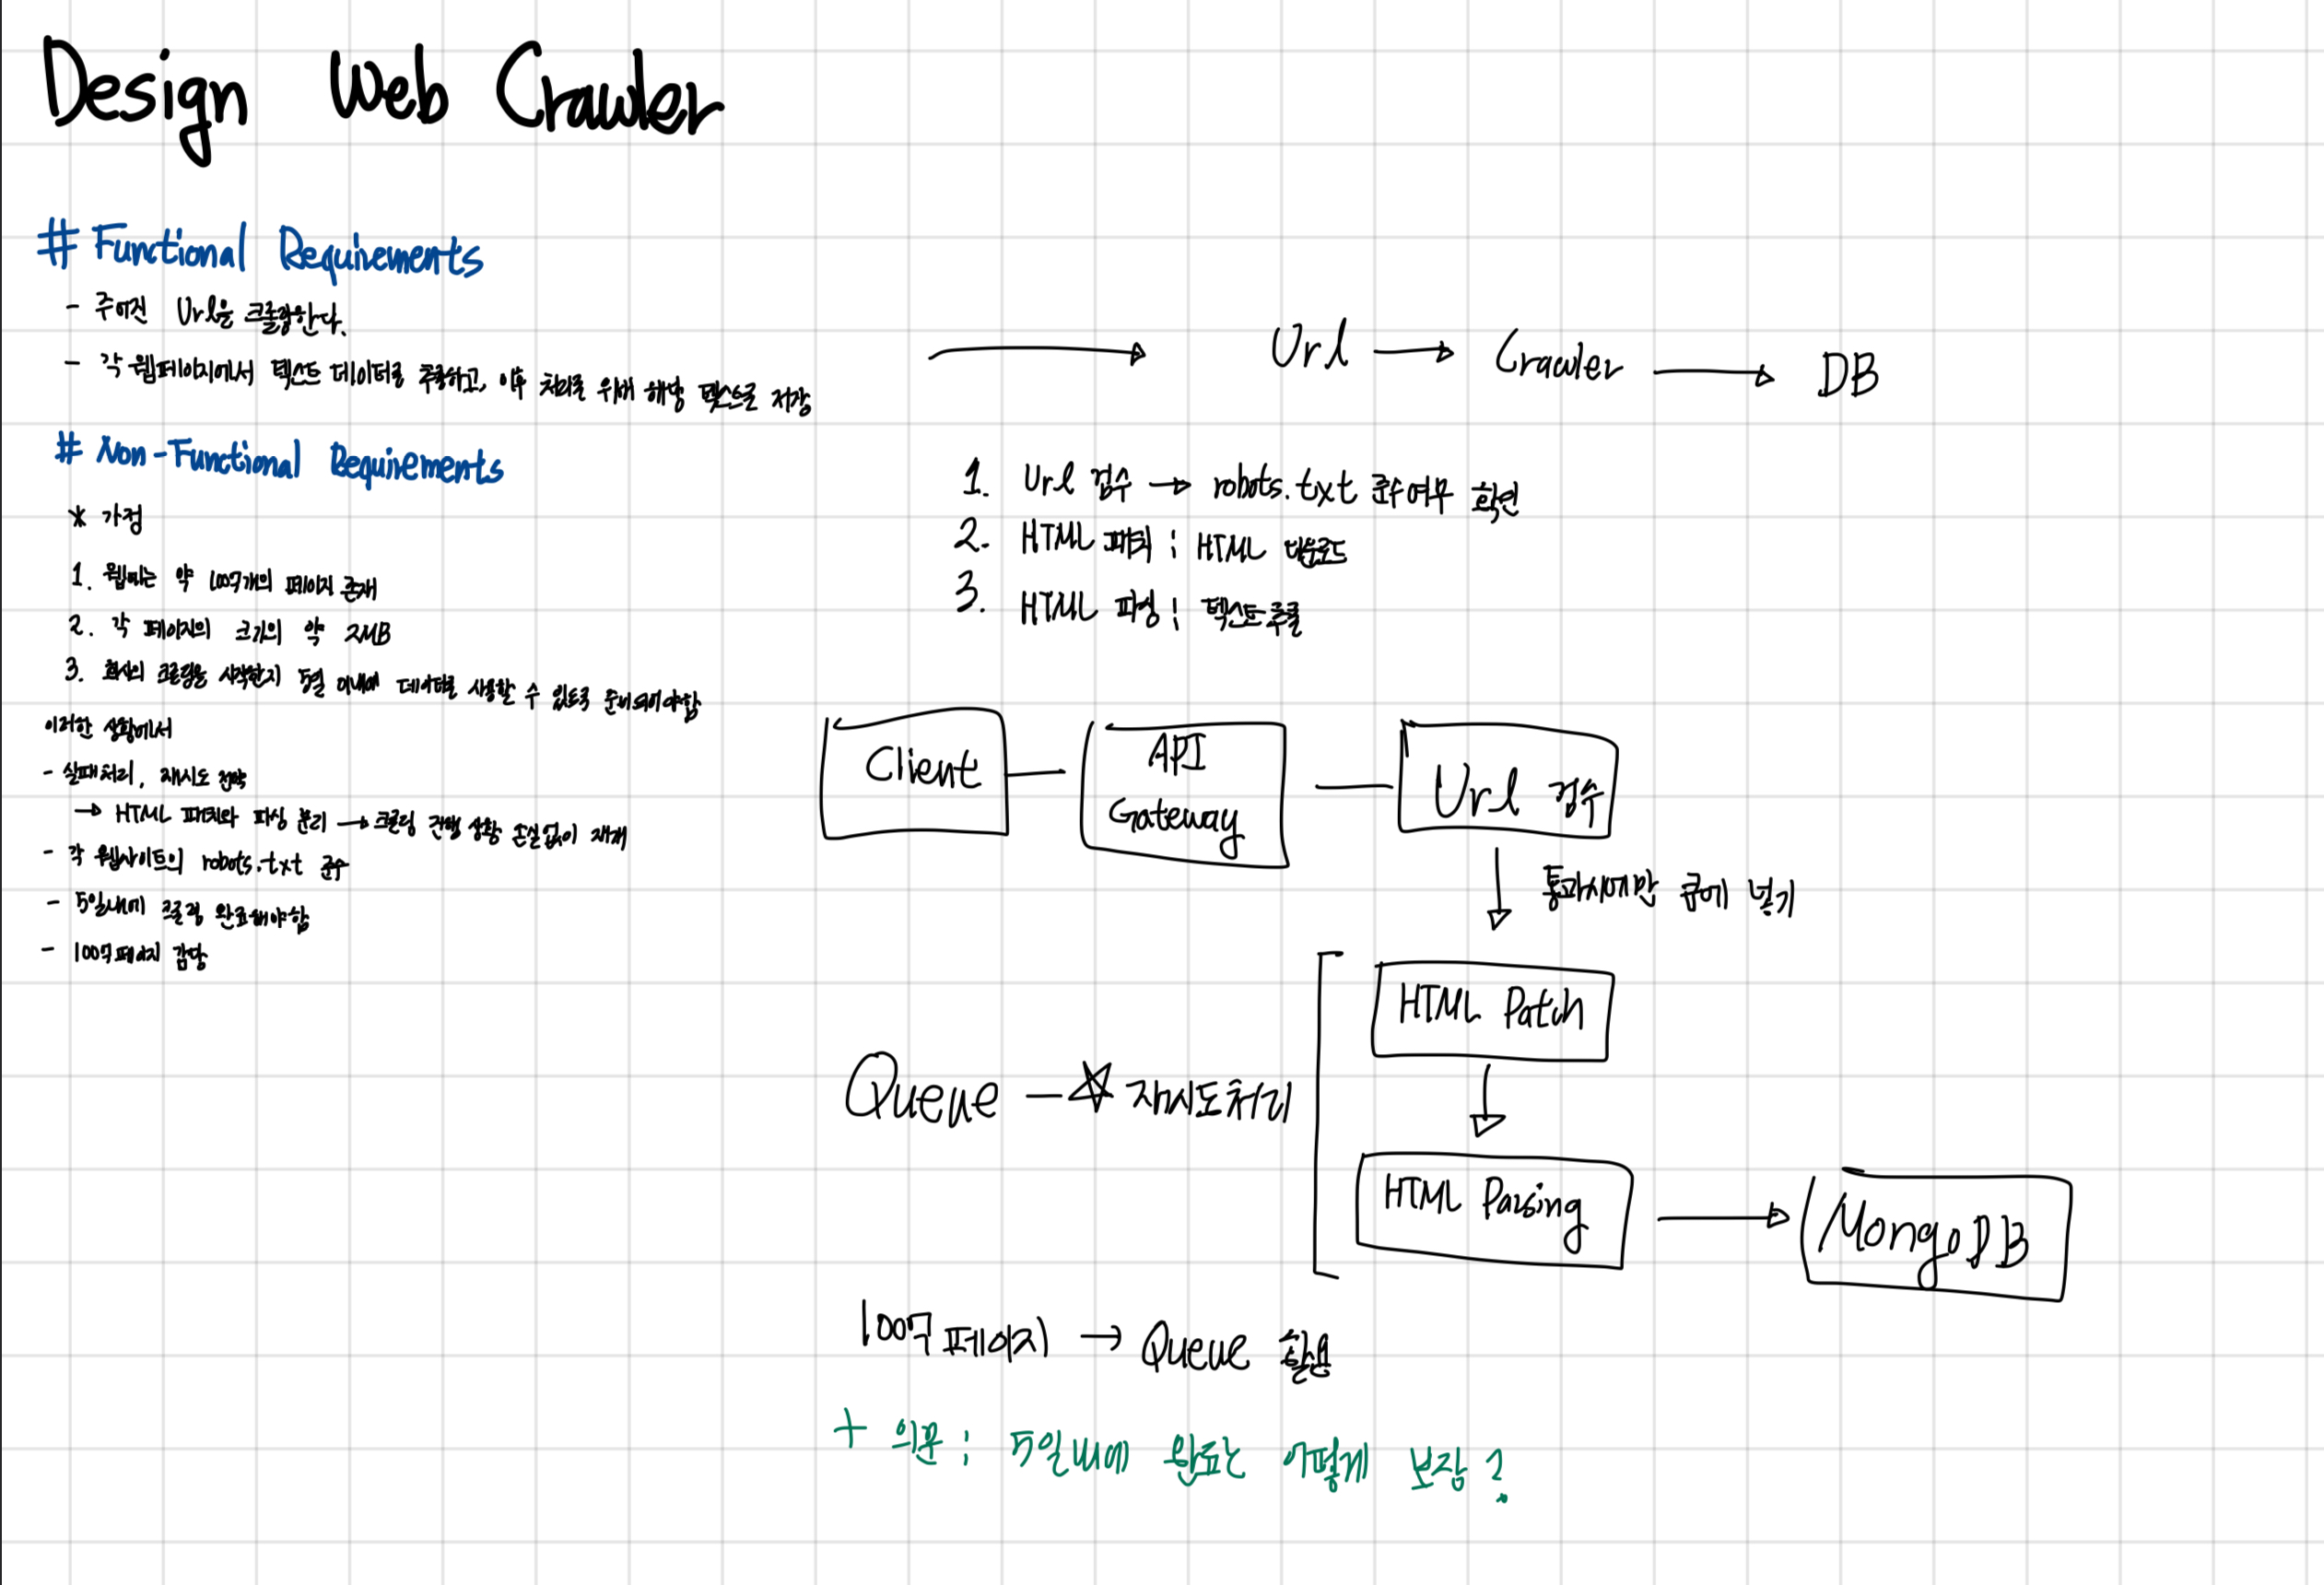 Design Web Crawler
# Functional Requirements
- 주어진 Url을 크롤링한다.
- 각 웹페이지에서 텍스트 데이터를 추출하고, 이후 처리를 위해 해당 텍스트를 저장
# Non-Functional Requirements
* 가정
1. 웹에는 약 100억개의 페이지 존재
2. 각 페이지의 크기의 약 2MB
3. 회사의 크롤링을 시작한지 5일 이내에 데이터를 사용할 수 있도록 준비되어야함
이러한 상황에서
- 실패처리, 재시도 전략
→ HTML 패치와 파싱 분리 → 크롤링 진행 상황 손실없이 재개
- 각 웹사이트의 robots.txt 준수
- 5일내에 크롤링 완료해야함
- 100억페이지 감당
Url → Crawler → DB
1. Url 검수 → robots.txt 준수여부 확인
2. HTML 패치 : HTML 다운로드
3. HTML 파싱 : 텍스트추출
Client
API
Gateway
Url 검수
통과시에만 큐에 넣기
HTML Patch
Queue - ☆ 재시도처리
HTML Parsing
MongoDB
100억 페이지 → Queue 활용
+ 의문 : 5일내에 완료는 어떻게 보장?